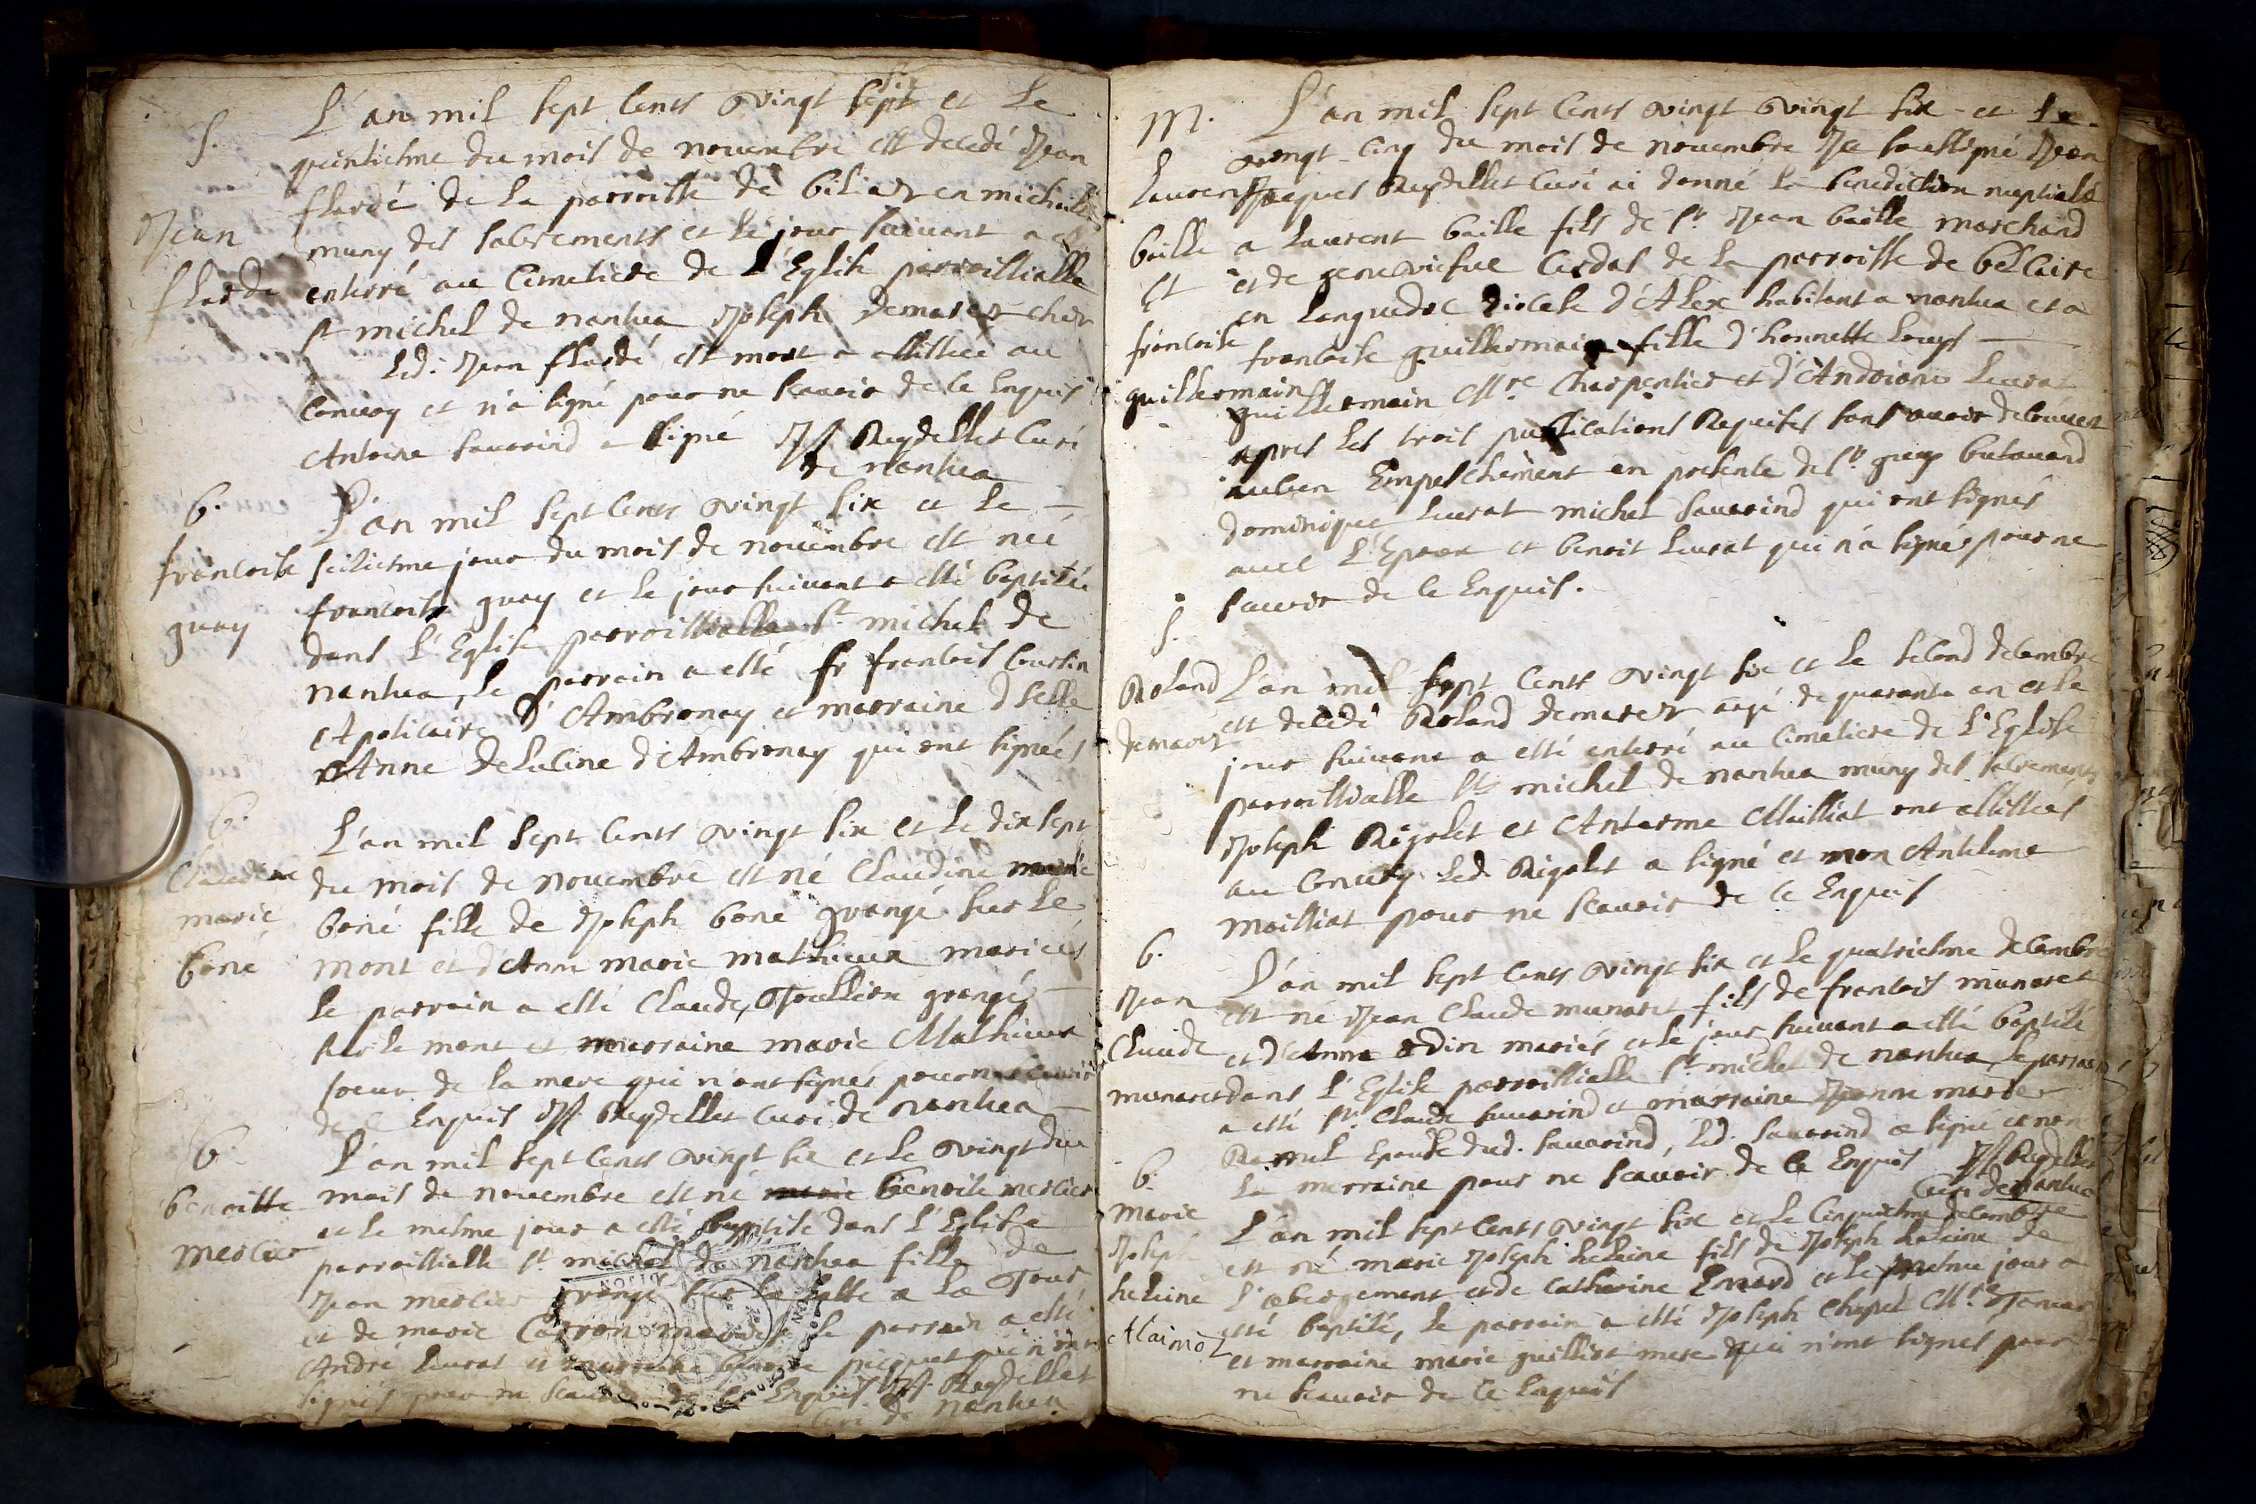 S.
Jean
flardé
L'an mil sept Cents vingt sept six et Le
quinziesme du mois de novembre est decedé Jean
flardé de La parroisse de biliaz en michaille
muny des sacrements et le jour suivant a esté
enterré au Cimetiere de L'Eglise parroissialle
st michel de nantua Joseph demarest cher
led. Jean flardé est mort a assistée au
Convoy et n'a signé pour ne scavoir de ce Enquis
Antoine sauarind a signé JJ Reydellet Curé
de nantua
b.
francoise
guay
L'an mil sept Cents vingt six et Le
seiziesme jour du mois de novembre est née
francoise guay et le jour suivant a esté baptisée
dans L'Eglise parroissialle st michel de
nantua, Le parrain a esté sr francois Coursin
Apoticaire d'Ambronay et marraine dselle
Anne delucine d'Ambronay qui ont signés
b.
Claudine
marie
boné
L'an mil sept Cents vingt six et Le dix sept
du mois de novembre est né Claudine marie
boné fille de Joseph boné grangé sur Le
mont et d'Anne marie mathieux mariés
Le parrain a esté Claude Joullion grangé
sur Le mont et marraine marie Mathieux
soeur de la mere qui n'ont signés pour ne scavoir
de ce Enquis JJ Reydellet Curé de nantua
b.
benoitte
mercier
L'an mil sept Cents vingt six et Le vingt du
mois de novembre est né marie benoite mercier
et Le mesme jour a esté baptisé dans L'Eglise
parroissialle st michel de nantua fille de
Jean mercier grangé sur La a La Tour
et de marie Carron mariés Le parrain a esté
André Leurat et marraine benoite picquet qui n'ont
signés pour ne scavoir de ce Enquis JJ Reydellet
Curé de nantua
M.
Laurent
baille
Et
francoise
guillermain
L'an mil sept Cents vingt vingt six et Le
vingt-Cinq du mois de novembre Je soussigné Jean
Jacques Reydellet Curé ai donné La benediction nuptiale
a Laurent baille fils de sr Jean baille marchand
et de geneviefue Cerdas de La parroisse de bel Caire
en Languedoc diocese d'Alex habitant a nantua et a
francoise guillermain fille d'honnette Louys
guillermain Mre Charpentier et d'Andriane Leurat
apres les trois publications Requises sans avoir decouvert
aucun Empeschement en presente de sr guy butavand
dominique Leurat michel sauarind qui ont signés
avec L'Epoux et benoit Leurat qui n'a signés pour ne
scavoir de ce Enquis.
S.
Roland
demarest
L'an mil sept Cents vingt six et Le second decembre
est decedé Roland demarest agé de quarante an et Le
jour suivant a esté enterré au Cimetiere de L'Eglise
parroissialle st michel de nantua muny des sacrements
Joseph Rigolet et Anterme Mailliat ont assistés
au Convoy Led. Rigolet a signé et non Antelme
mailliat pour ne scavoir de ce Enquis
b.
Jean
Claude
munaret
L'an mil sept Cents vingt six et Le quatriesme decembre
est né Jean Claude munaret fils de francois munaret
et d'Anne odin mariés et Le jour suivant a esté baptisé
dans L'Eglise parroissialle st michel de nantua Le parrain
a esté sr Claude sauarind et marraine Jeanne marie
Ravinel Epouse dud. sauarind, Led. sauarind a signé et non
La marraine pour ne scavoir de ce Enquis JJ Reydellet
Curé de nantua
b.
Marie
Josepé
heleine
Alaimoz
L'an mil sept Cents vingt six et Le Cinquiesme decembre
est né marie Joseph heleine fils de Joseph heleine de
L'abergement et de Catherine Emard et Le mesme jour a
esté baptisé, Le parrain a esté Joseph Chapel Mre
et marraine marie guilliot mere qui n'ont signés pour
ne scavoir de ce Enquis